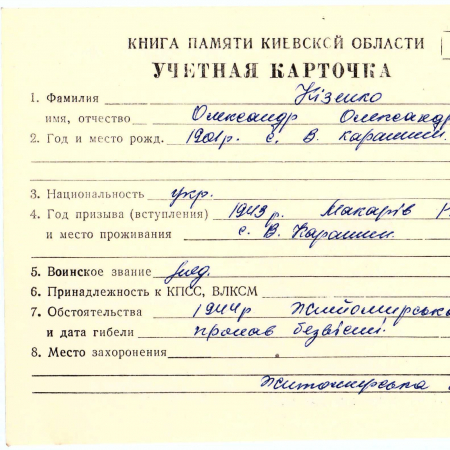 КНИГА ПАМЯТИ КИЕВСКОЙ ОБЛАСТИ
УЧЕТНАЯ КАРТОЧКА
1. Фамилия Кізенко
имя, отчество Олександр Олександр
2. Год и место рожд. 1901р. с. В. Карашин.
3. Национальность укр.
4. Год призыва (вступления) 1943 р. Макарів
и место проживания с. В. Карашин.
5. Воинское звание
6. Принадлежность к КПСС, ВЛКСМ
7. Обстоятельства 1944р Житомирська
и дата гибели пропав безвісті.
8. Место захоронения
Житомирська